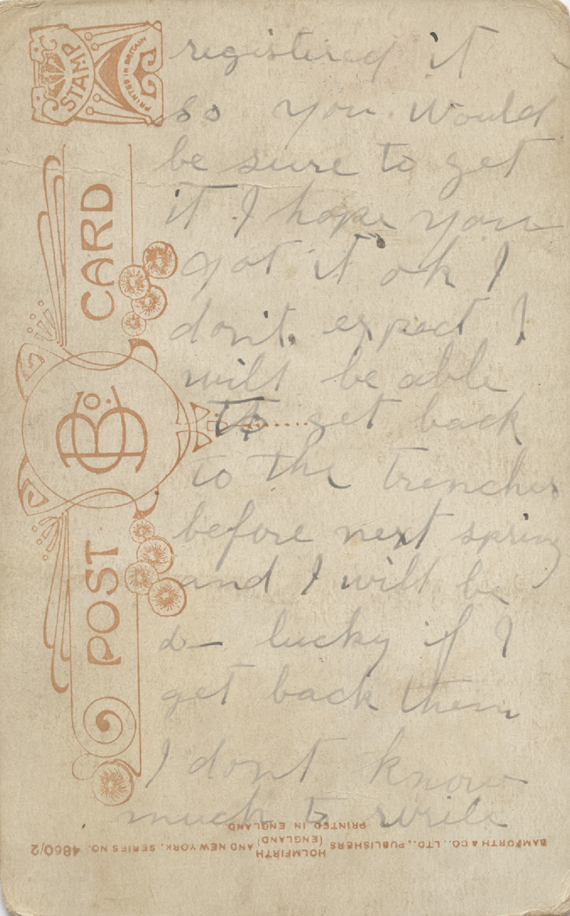 registered it
so you would
be sure to get
it I hope you
got it ok I
don't expect I
will be able
to get back
to the trenches
before next spring
and I will be
d— lucky if I
get back then
I don't know
much to write
STAMP
PRINTED IN BRITAIN
POST CARD
B Co.
BAMFORTH & CO., LTD., PUBLISHERS HOLMFIRTH (ENGLAND) AND NEW YORK. SERIES NO. 4860/2
PRINTED IN ENGLAND